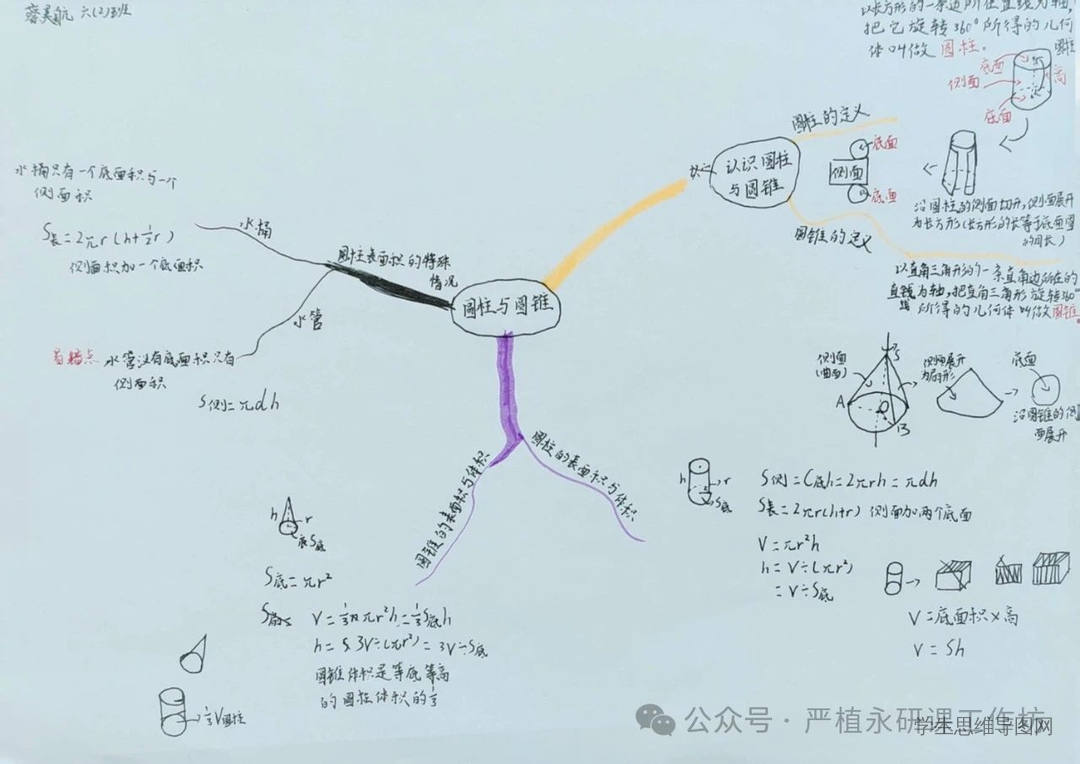 六(2)班
圆柱与圆锥
认识圆柱
与圆锥
圆柱的定义
以长方形的一条边所在直线为轴,
把它旋转360°所得的几何
体叫做圆柱。
圆柱
底面
侧面
高
底面
底面
侧面
底面
沿圆柱的侧面切开,侧面展开
为长方形(长方形的长等于底面圆
的周长)
圆锥的定义
以直角三角形的一条直角边所在的
直线为轴,把直角三角形旋转360°
所得的几何体叫做圆锥。
侧面
(曲面)
S
A
O
B
侧面展开
为扇形
底面
沿圆锥的侧
面展开
圆柱的表面积与体积
h
r
S底
S侧=C底h=2πrh=πdh
S表=2πr(h+r) 侧面加两个底面
V=πr²h
h=V÷(πr²)
=V÷S底
V=底面积×高
V=Sh
圆锥的表面积与体积
h
r
S底
S底=πr²
V=⅓πr²h=⅓S底h
h=3V÷(πr²)=3V÷S底
圆锥体积是等底等高
的圆柱体积的⅓
⅓V圆柱
圆柱表面积的特殊
情况
水桶
水桶只有一个底面积与一个
侧面积
S表=2πr(h+½r)
侧面积加一个底面积
水管
易错点 水管没有底面积只有
侧面积
S侧=πdh
公众号·严植永研课工作坊
学生思维导图网